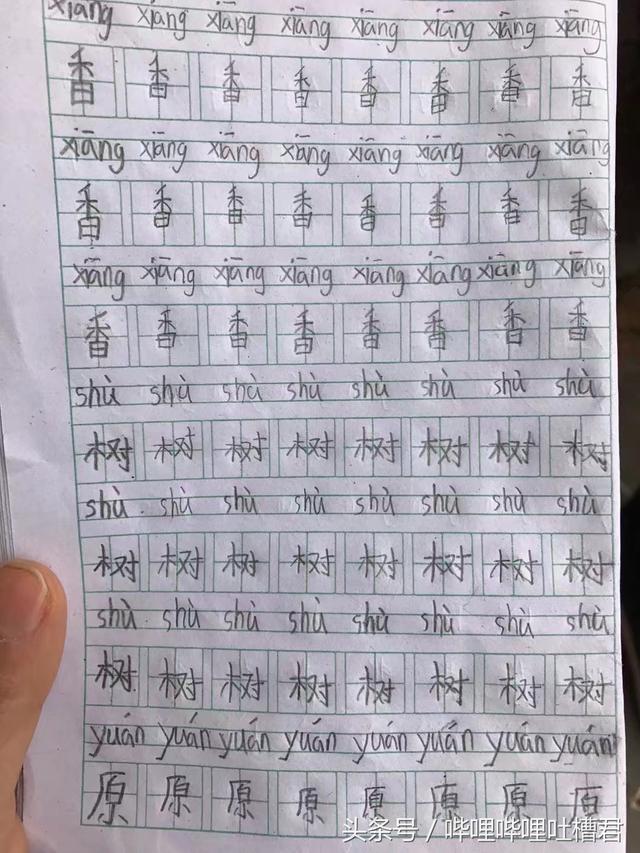 xiāng xiāng xiāng xiāng xiāng xiāng xiāng xiāng
香 香 香 香 香 香 香 香
xiāng xiāng xiāng xiāng xiāng xiāng xiāng xiāng
香 香 香 香 香 香 香 香
xiāng xiāng xiāng xiāng xiāng xiāng xiāng xiāng
香 香 香 香 香 香 香 香
shù shù shù shù shù shù shù shù
树 树 树 树 树 树 树 树
shù shù shù shù shù shù shù shù
树 树 树 树 树 树 树 树
shù shù shù shù shù shù shù shù
树 树 树 树 树 树 树 树
yuán yuán yuán yuán yuán yuán yuán yuán
原 原 原 原 原 原 原 原
头条号 / 哔哩哔哩吐槽君